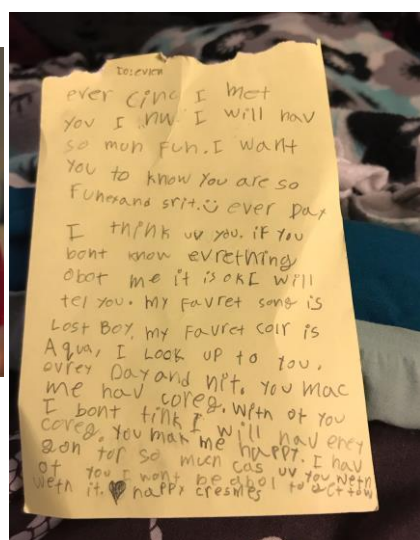 to:evien
ever cinc I met
you I nw I will hav
so mun fun. I want
you to know you are so
Funexand srit.☺ ever Day
I think uv you. if you
bont know evrething
obot me it is ok I will
tel you. my favret song is
Lost Boy, my Favret colr is
Aqua, I Look up to you.
ovrey Day and nit. you mac
me hav coreg. weth ot you
I bont tink I will hav eney
coreg. you mak me happy. I hav
gon for so much cas uv you
ot you I wont be abol to
weth it. ♥ happy cresmes